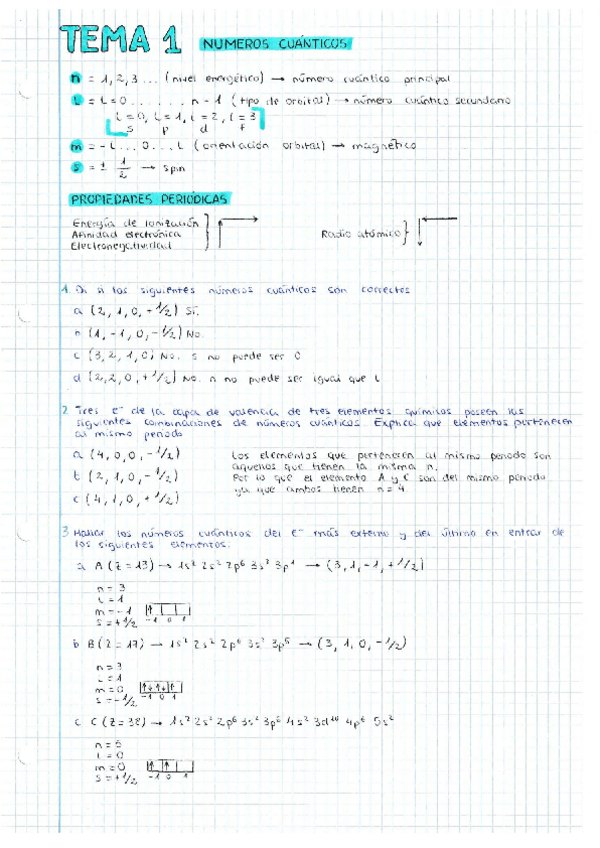 TEMA 1 NUMEROS CUÁNTICOS
n = 1, 2, 3 ... (nivel energético) → número cuántico principal
L = L=0 ....... n-1 (tipo de orbital) → número cuántico secundario
L=0, L=1, L=2, L=3
s p d f
m = -L ... 0 ... L (orientación orbital) → magnético
s = ± 1/2 → spin
PROPIEDADES PERIÓDICAS
Energía de Ionización
Afinidad electrónica
Electronegatividad
Radio atómico
1. Di si los siguientes números cuánticos son correctos
a (2, 1, 0, +1/2) Sí.
(1, -1, 0, -1/2) No.
c (3, 2, 1, 0) No. s no puede ser 0
d (2, 2, 0, +1/2) No. n no puede ser igual que L
2 Tres e- de la capa de valencia de tres elementos químicos poseen las
siguientes combinaciones de números cuánticos. Explica que elementos pertenecen
al mismo periodo
a (4, 0, 0, -1/2)
b (2, 1, 0, -1/2)
c (4, 1, 0, +1/2)
Los elementos que pertenecen al mismo periodo son
aquellos que tienen la misma n.
Por lo que el elemento A y C son del mismo periodo
ya que ambos tienen n = 4
3 Hallar los números cuánticos del e- más externo y del último en entrar de
los siguientes elementos:
a A (Z=13) → 1s² 2s² 2p⁶ 3s² 3p¹ → (3, 1, -1, +1/2)
n = 3
L = 1
m = -1 ↑
s = +1/2 -1 0 1
b B (Z=17) → 1s² 2s² 2p⁶ 3s² 3p⁵ → (3, 1, 0, -1/2)
n = 3
L = 1
m = 0 ↑↓ ↑↓ ↑
s = -1/2 -1 0 1
c C (Z=38) → 1s² 2s² 2p⁶ 3s² 3p⁶ 4s² 3d¹⁰ 4p⁶ 5s²
n = 5
L = 0
m = 0
s = +1/2 -1 0 1